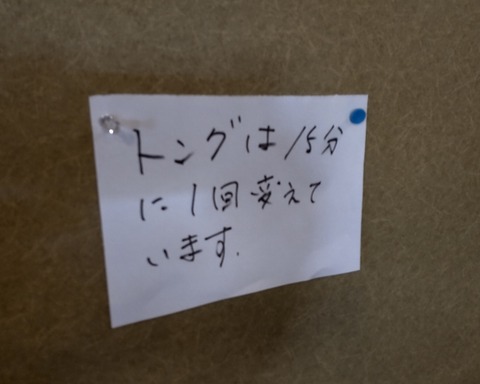 トングは15分
に1回変えて
います.